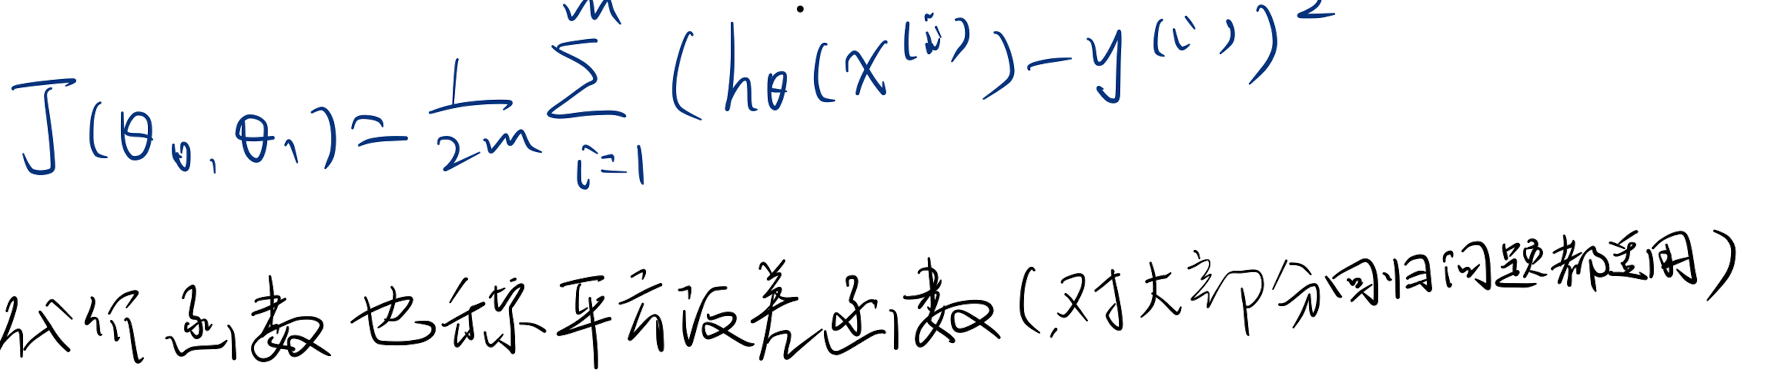 J(θ₀, θ₁) = 1/2m ∑_{i=1}^{m} (hθ(x⁽ⁱ⁾) - y⁽ⁱ⁾)²
代价函数也称平方误差函数(对大部分回归问题都适用)